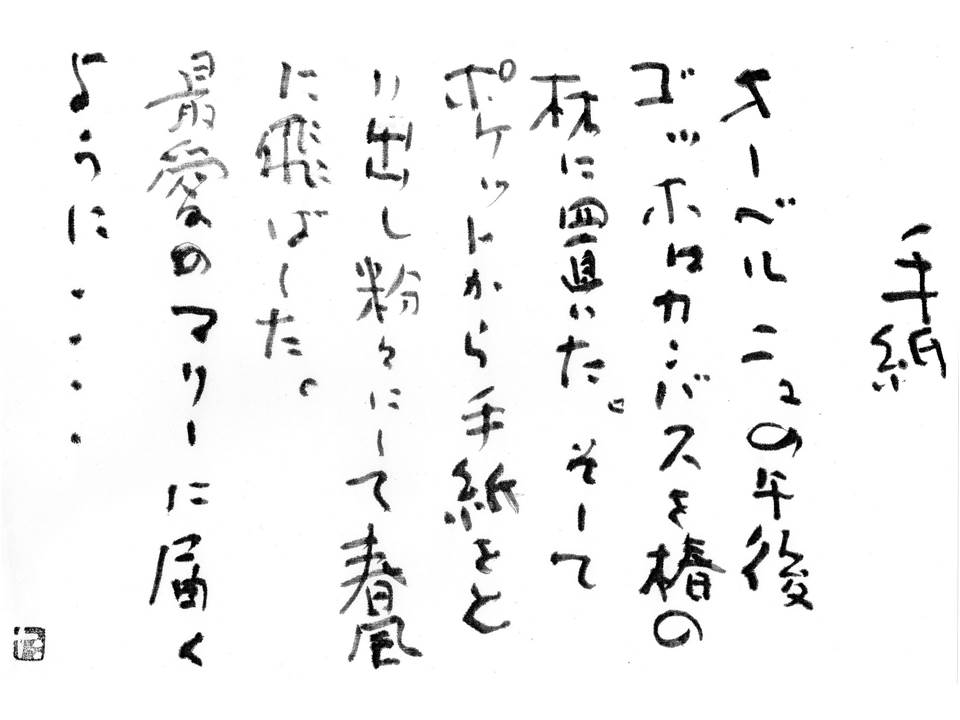 手紙
オーベルニュの午後
ゴッホはカンバスを椿の
林に置いた。そして
ポケットから手紙をと
り出し粉々にして春風
に飛ばした。
最愛のマリーに届く
ように・・・・